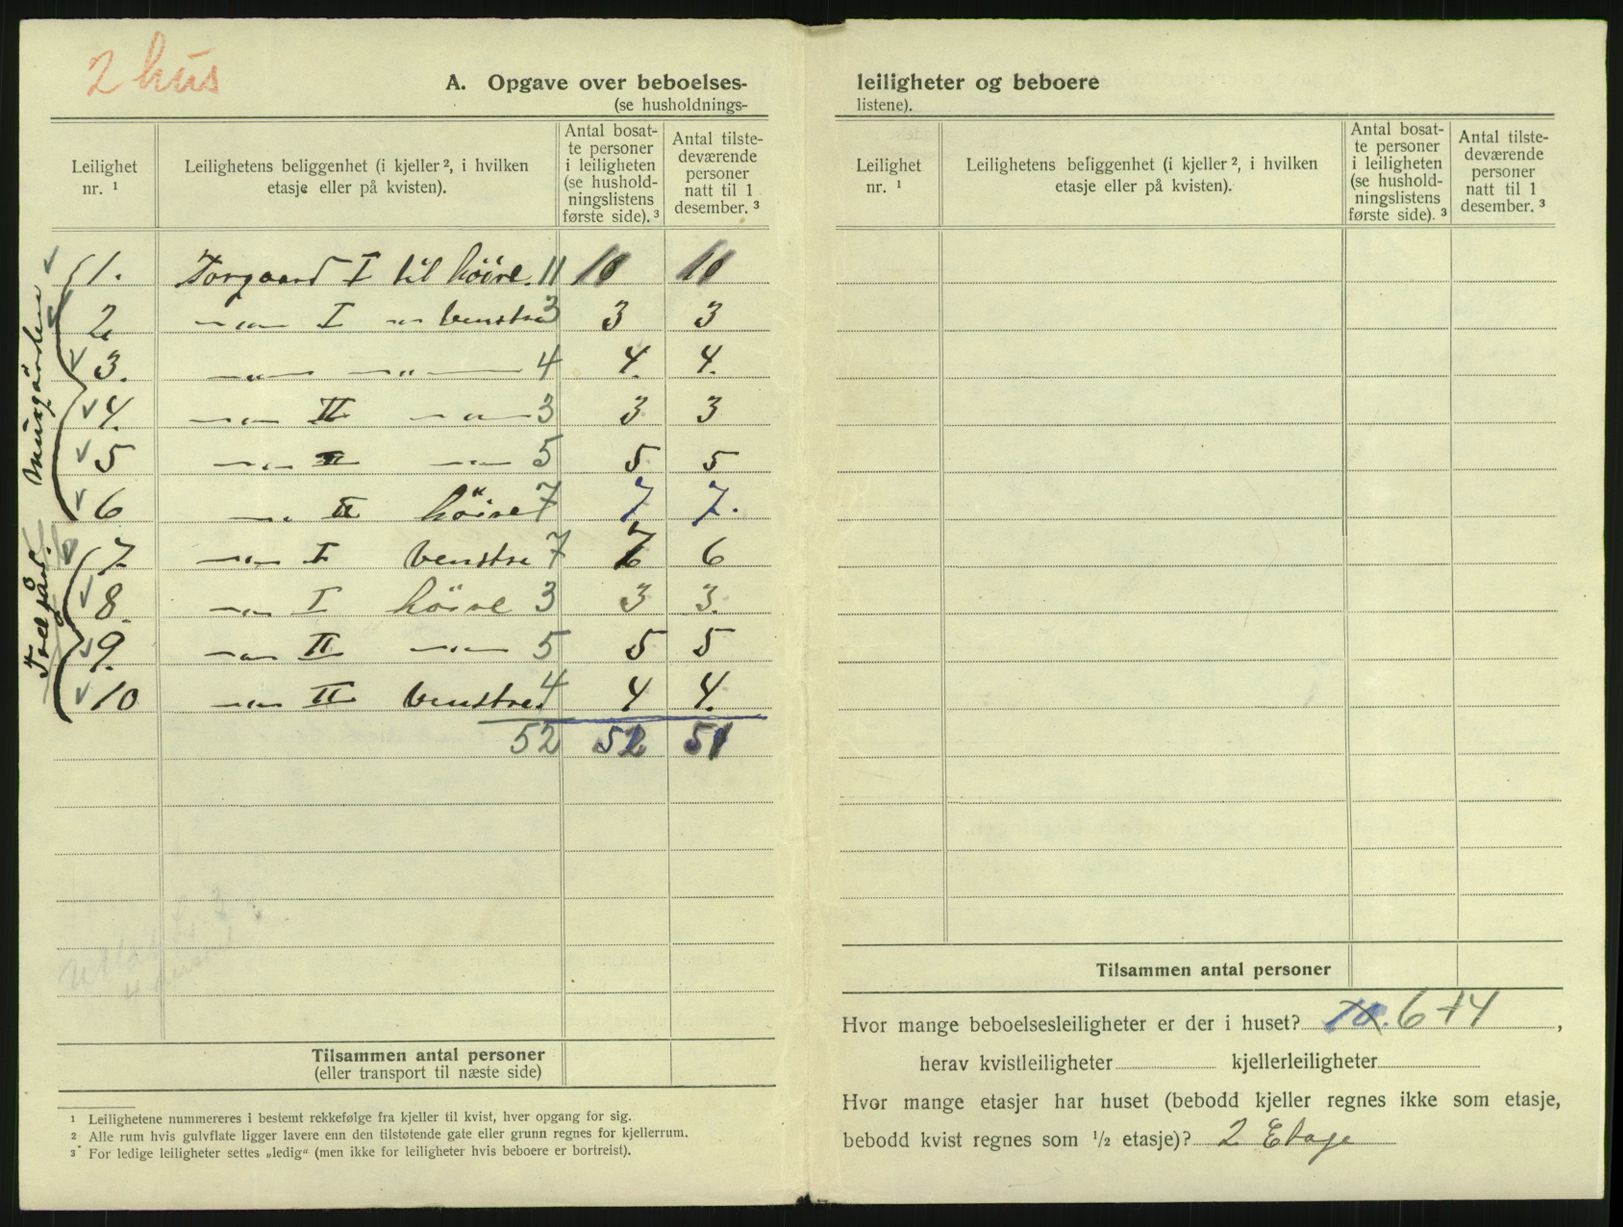 2 hus
A. Opgave over beboelses-
(se husholdnings-
Leilighet nr. ¹
Leilighetens beliggenhet (i kjeller ², i hvilken etasje eller på kvisten).
Antal bosat-te personer i leiligheten (se hushold-ningslistens første side). ³
Antal tilste-deværende personer natt til 1 desember. ³
1. Torgaard I til höire. 11 10 10
2 —"— I —"— Venstre 3 3 3
3. —"— —"— 4 4. 4.
4. —"— II —"— 3 3 3
5 —"— II —"— 5 5 5
6 —"— II höire 7 7 7.
7. —"— I Venstre 7 7 6
8. —"— I höire 3 3 3.
9. —"— II —"— 5 5 5
10 —"— II Venstre 4 4 4.
52 52 51
Murgården
Tilsammen antal personer
(eller transport til næste side)
¹ Leilighetene nummereres i bestemt rekkefølge fra kjeller til kvist, hver opgang for sig.
² Alle rum hvis gulvflate ligger lavere enn den tilstøtende gate eller grunn regnes for kjellerrum.
³ For ledige leiligheter settes „ledig“ (men ikke for leiligheter hvis beboere er bortreist).
leiligheter og beboere
listene).
Leilighet nr. ¹
Leilighetens beliggenhet (i kjeller ², i hvilken etasje eller på kvisten).
Antal bosat-te personer i leiligheten (se hushold-ningslistens første side). ³
Antal tilste-deværende personer natt til 1 desember. ³
Tilsammen antal personer
Hvor mange beboelsesleiligheter er der i huset? 10. 6+4,
herav kvistleiligheter kjellerleiligheter
Hvor mange etasjer har huset (bebodd kjeller regnes ikke som etasje,
bebodd kvist regnes som ½ etasje)? 2 Etage